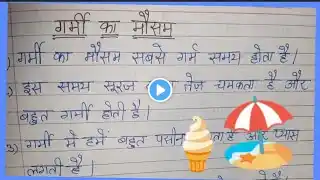 गर्मी का मौसम
1) गर्मी का मौसम सबसे गर्म समय होता है।
2. इस समय सूरज तेज चमकता है और
बहुत गर्मी होती है।
3) गर्मी में हमें बहुत और प्यास
लगती है।